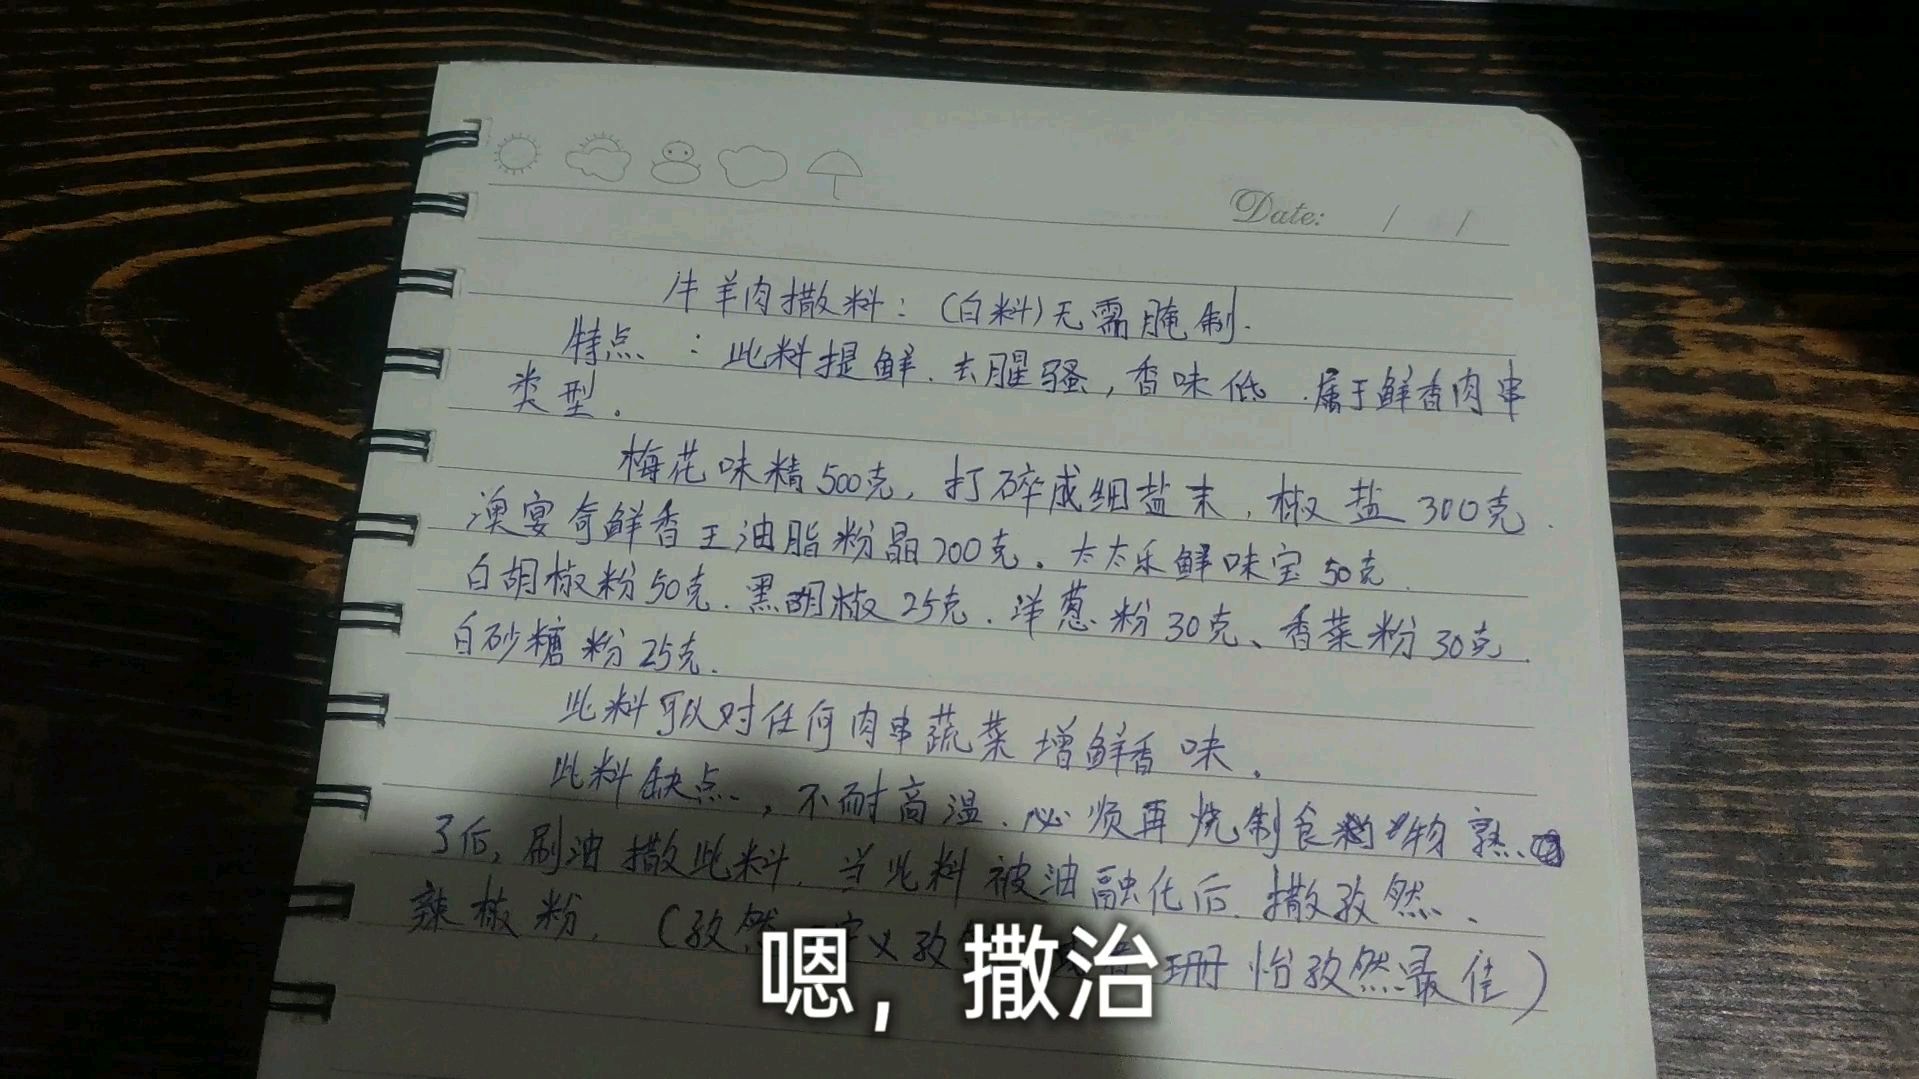 Date: / /
牛羊肉撒料：（白料）无需腌制.
特点：此料提鲜.去腥骚，香味低.属于鲜香肉串
类型.
梅花味精500克，打碎成细盐末，椒盐300克.
澳宴奇鲜香王油脂粉晶200克.太太乐鲜味宝50克.
白胡椒粉50克.黑胡椒25克.洋葱粉30克、香菜粉30克.
白砂糖粉25克.
此料可以对任何肉串蔬菜增鲜香味.
此料缺点，不耐高温.必须再烧制食物熟.
了后，刷油撒此料.当此料被油融化后.撒孜然、
辣椒粉.（孜然 义孜 珊怡孜然最佳）
嗯，撒治